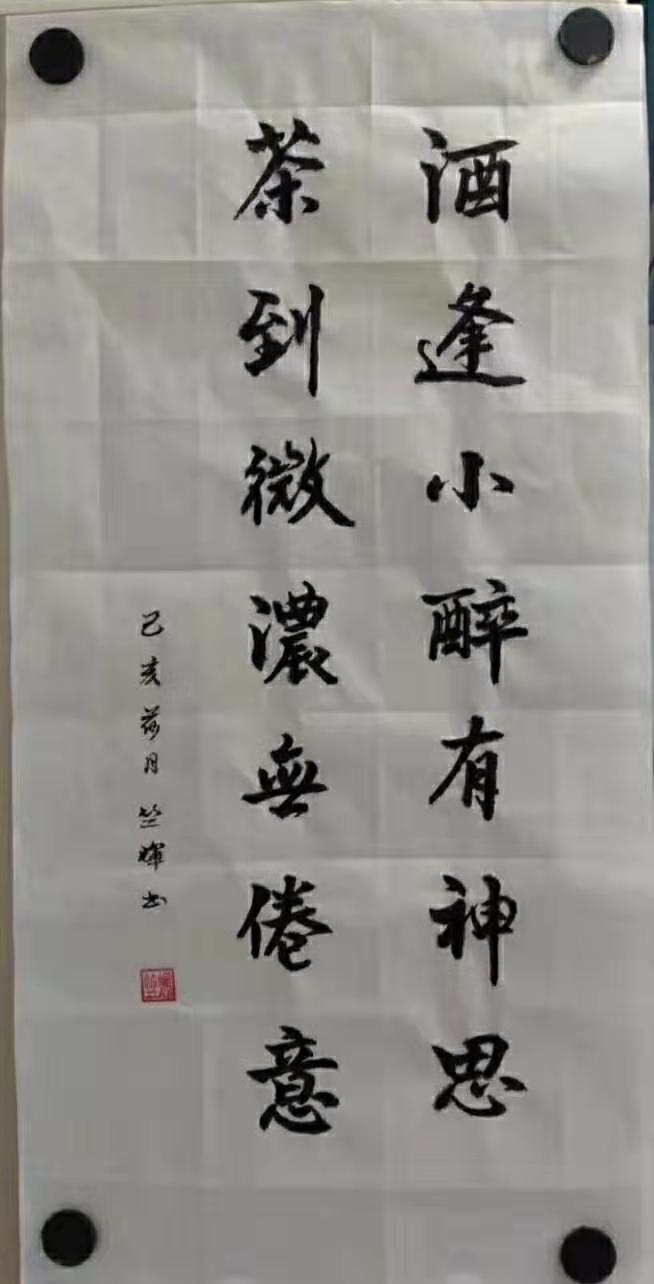 酒逢小醉有神思
茶到微濃無倦意
己亥荔月竺輝书